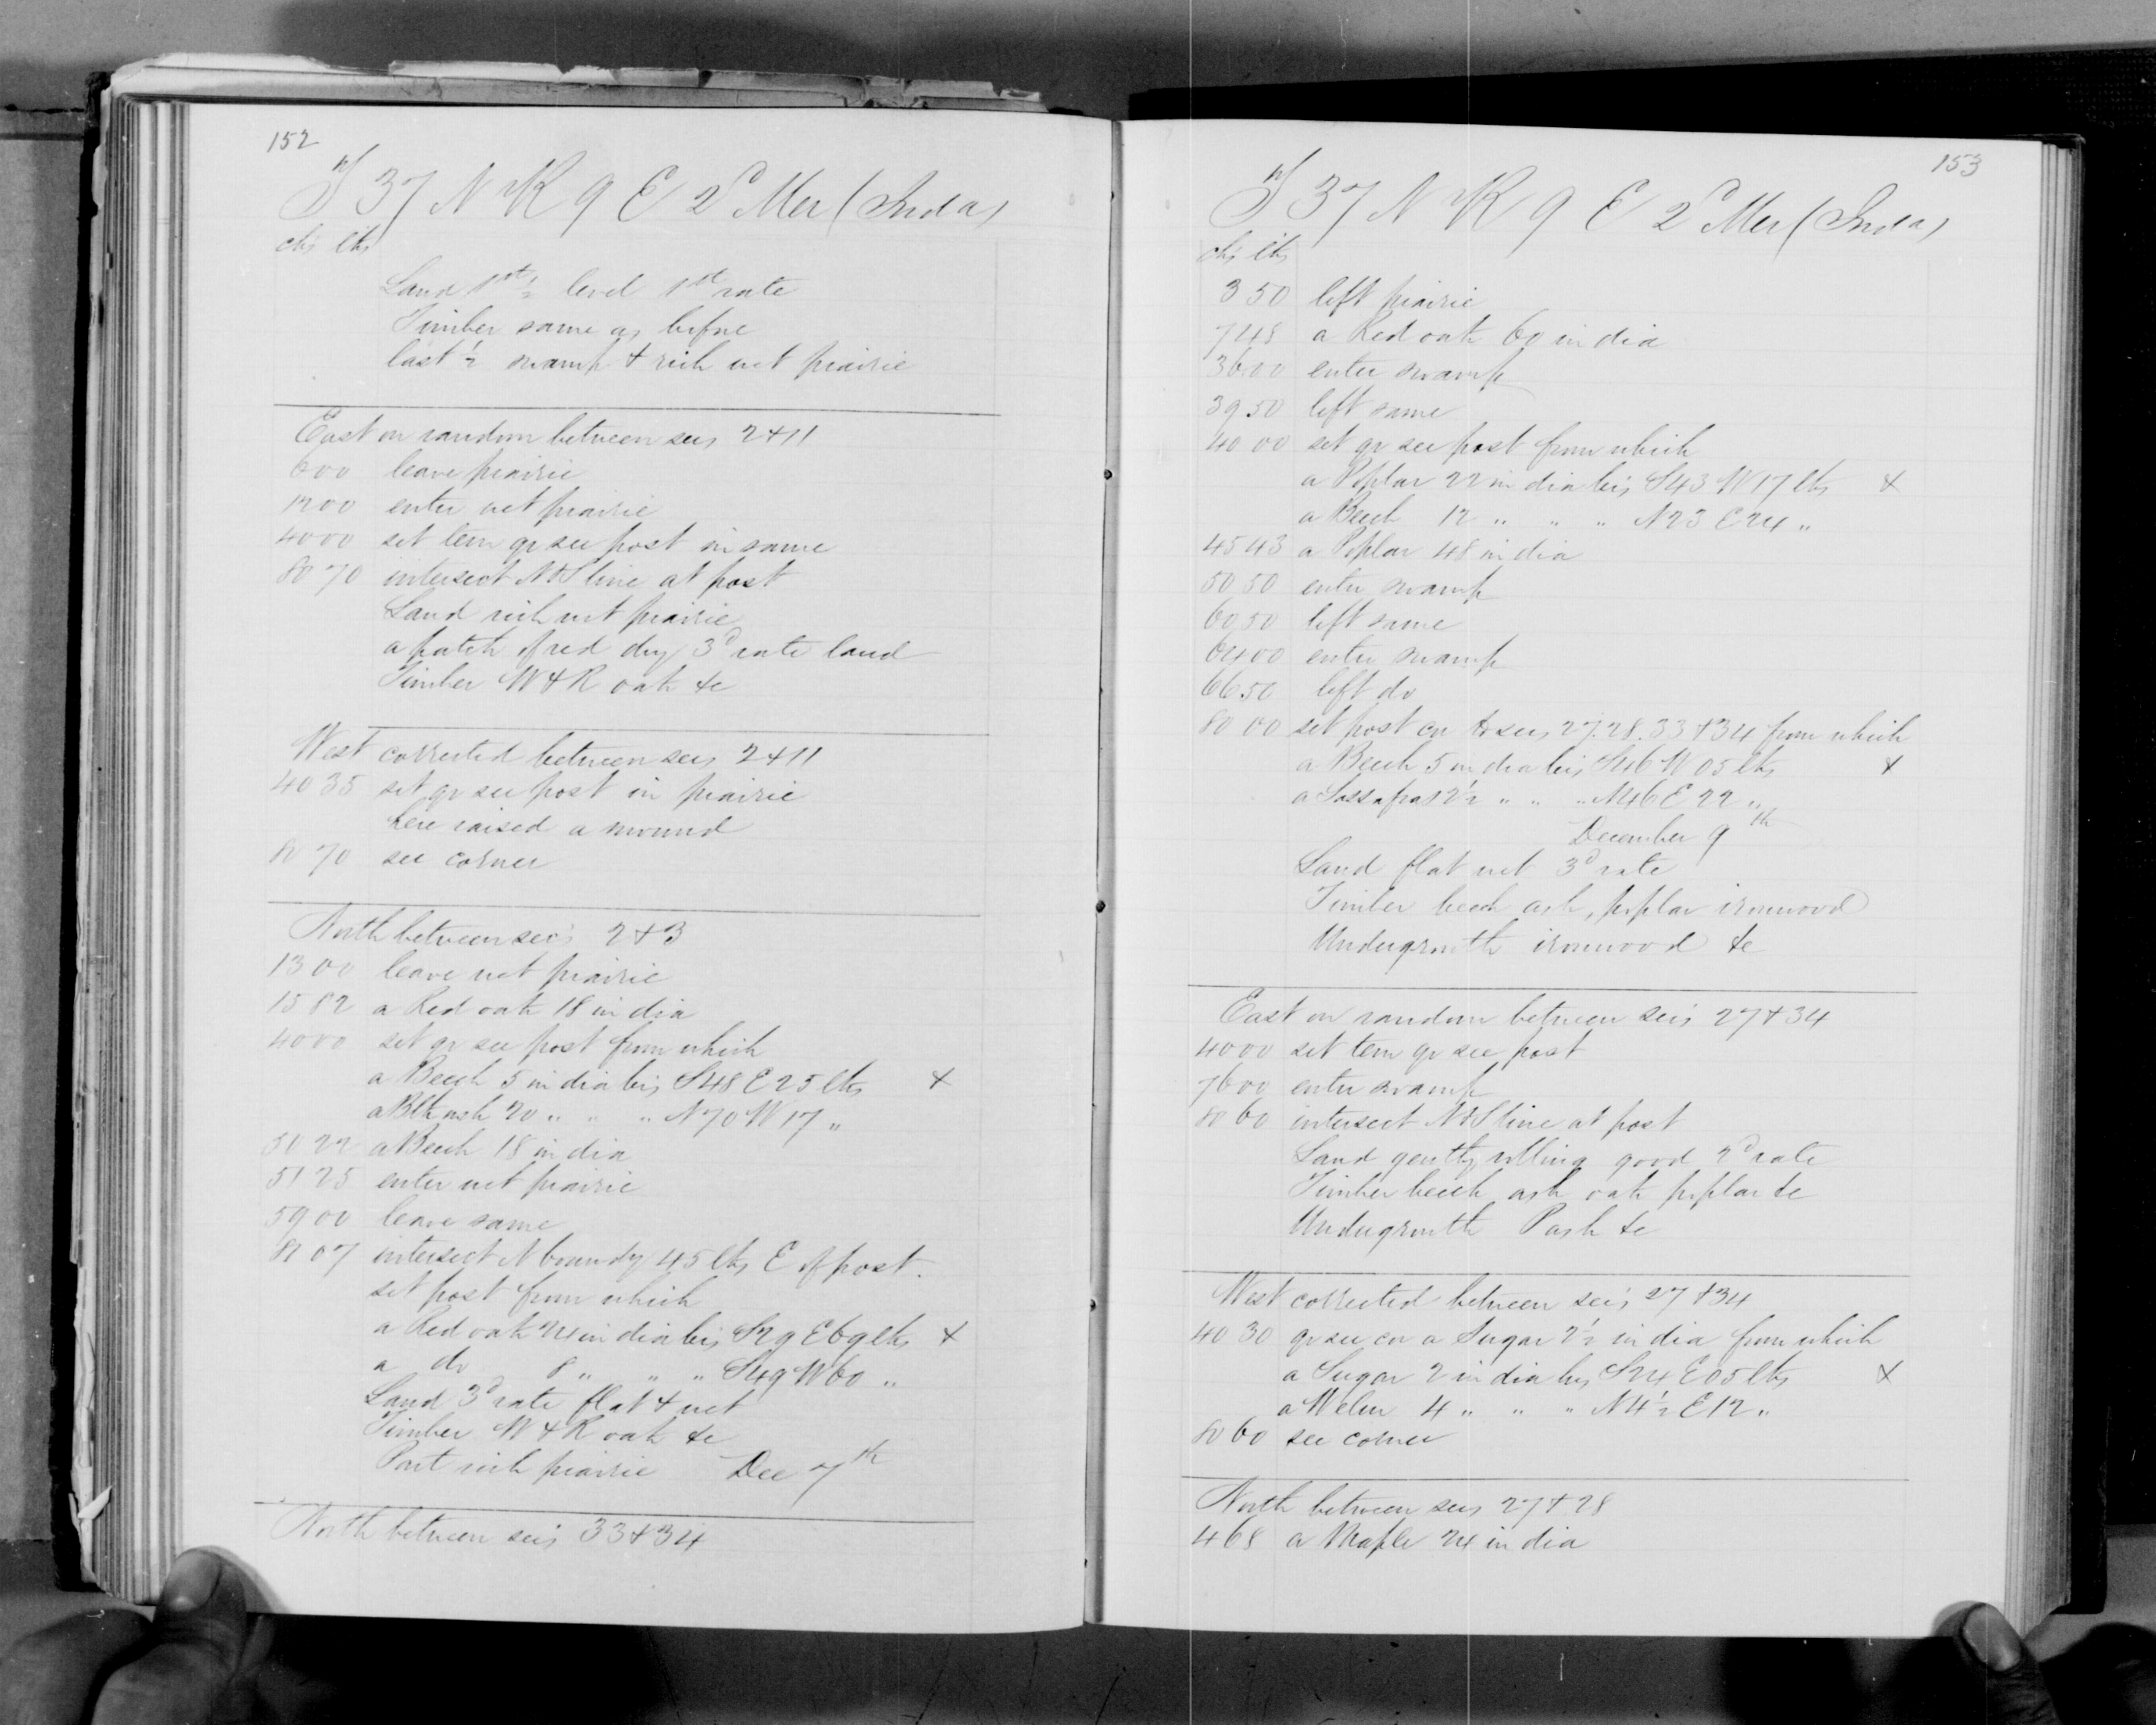 152
T 37 N R 9 E 2d Mer (Inda)
chs lks
Land 1st ½ level 1st rate
Timber same as before
last ½ swamp & rich wet prairie
East on random between secs 2 & 11
6 00 leave prairie
12 00 enter wet prairie
40 00 set tem qr sec post in same
80 70 intersect N & S line at post
Land rich wet prairie
a patch of red dry 3d rate land
Timber W & R oak &c
West corrected between secs 2 & 11
40 35 set qr sec post in prairie
here raised a mound
80 70 sec corner
North between sec's 2 & 3
13 00 leave wet prairie
15 82 a Red oak 18 in dia
40 00 set qr sec post from which
a Beech 5 in dia brs S48 E 25 lks x
a Blk ash 20 " " " N70 W 17 "
50 22 a Beech 18 in dia
51 25 enter wet prairie
59 00 leave same
81 07 intersect N boundy 45 lks E of post.
set post from which
a Red oak 24 in dia brs S29 E 69 lks x
a do 8 " " " S49 W 60 "
Land 3d rate flat & wet
Timber W & R oak &c
Part rich prairie Dec 7th
North between sec's 33 & 34
153
T 37 N R 9 E 2d Mer (Inda)
chs lks
3 50 left prairie
7 48 a Red oak 60 in dia
36 00 enter swamp
39 50 left same
40 00 set qr sec post from which
a Poplar 22 in dia brs S43 W 17 lks x
a Beech 12 " " " N23 E 24 "
45 43 a Poplar 48 in dia
50 50 enter swamp
60 50 left same
64 00 enter swamp
66 50 left do
80 00 set post cor to secs 27. 28. 33 & 34 from which
a Beech 5 in dia brs S46 W 05 lks x
a Sassafras 2½ " " " N46 E 22 "
December 9th
Land flat wet 3d rate
Timber beech ash, poplar ironwood
Undergrowth ironwood &c
East on random between sec's 27 & 34
40 00 set tem qr sec post
76 00 enter swamp
80 60 intersect N & S line at post
Land gently rolling good 2d rate
Timber beech ash oak poplar &c
Undergrowth P ash &c
West corrected between sec's 27 & 34
40 30 qr sec cor a Sugar 2½ in dia from which
a Sugar 2 in dia brs S24 E 05 lks x
a W elm 4 " " " N4½ E 12 "
80 60 sec corner
North between secs 27 & 28
4 68 a Maple 24 in dia